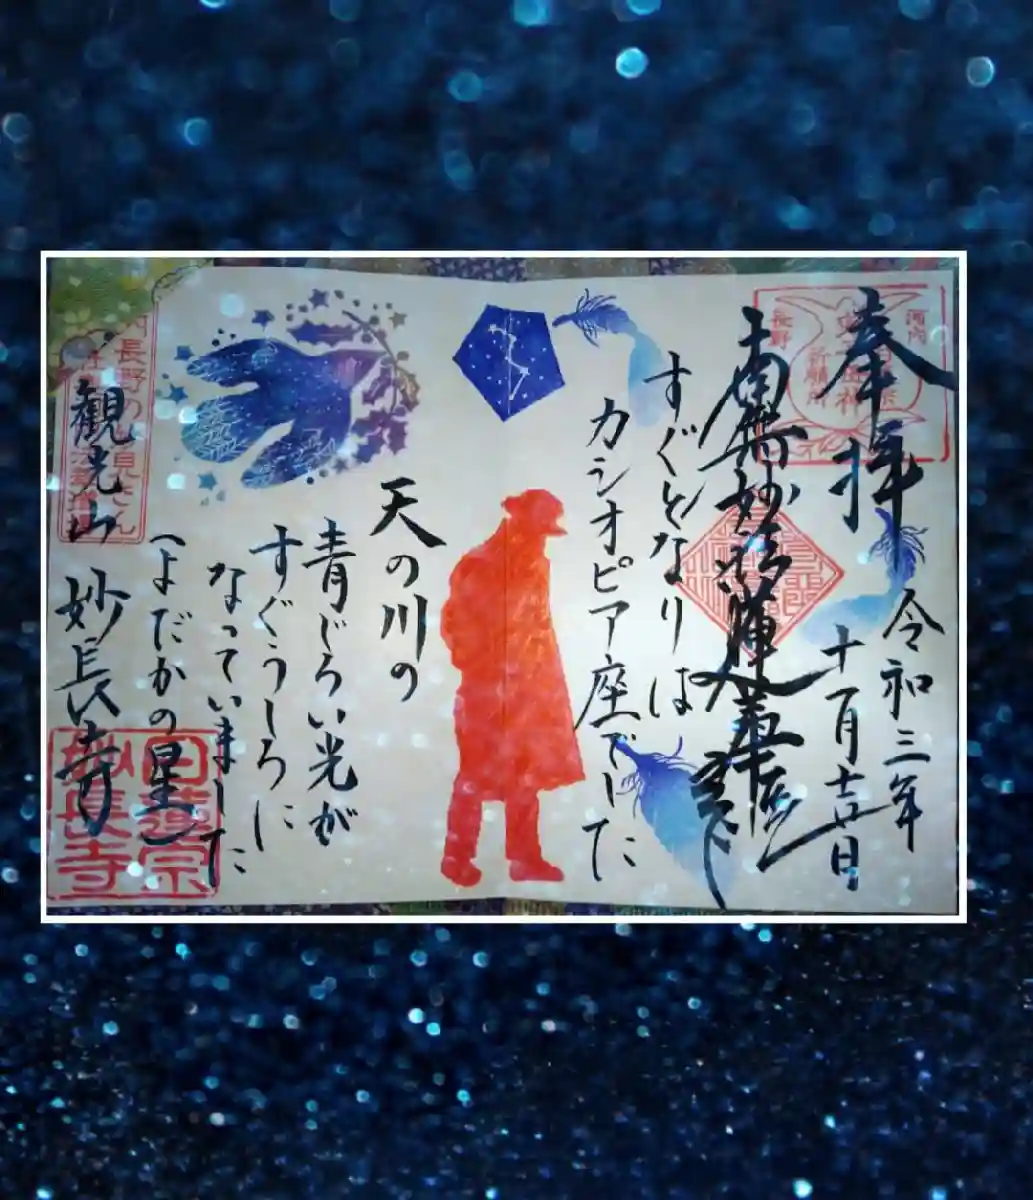 奉拝
河内
長野
令和三年
十一月吉日
南無妙法蓮華経
すぐとなりは
カシオピア座でした
天の川の
青じろい光が
すぐうしろに
なっていました
(よだかの星)
長野の妙見さん
観光山 妙長寺
日蓮宗
妙長寺